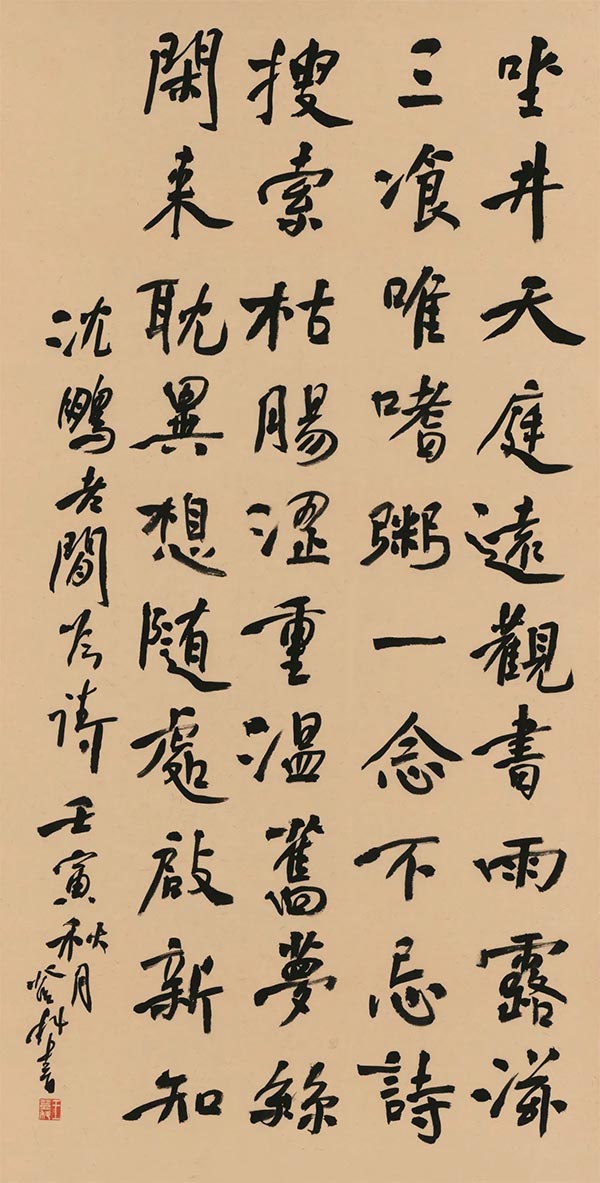 坐井天庭遠觀書雨露滋
三飡唯嗜粥一念不忘詩
搜索枯腸澀重溫舊夢絲
閑来耽異想隨處啟新知
沈鵬老閒吟詩 壬寅秋月 科書